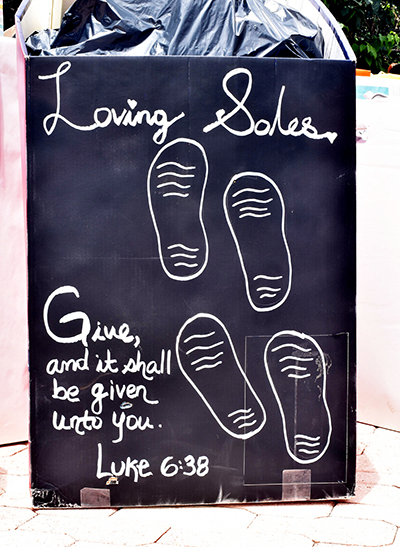 Loving Soles.
Give,
and it shall
be given
unto you.
Luke 6:38